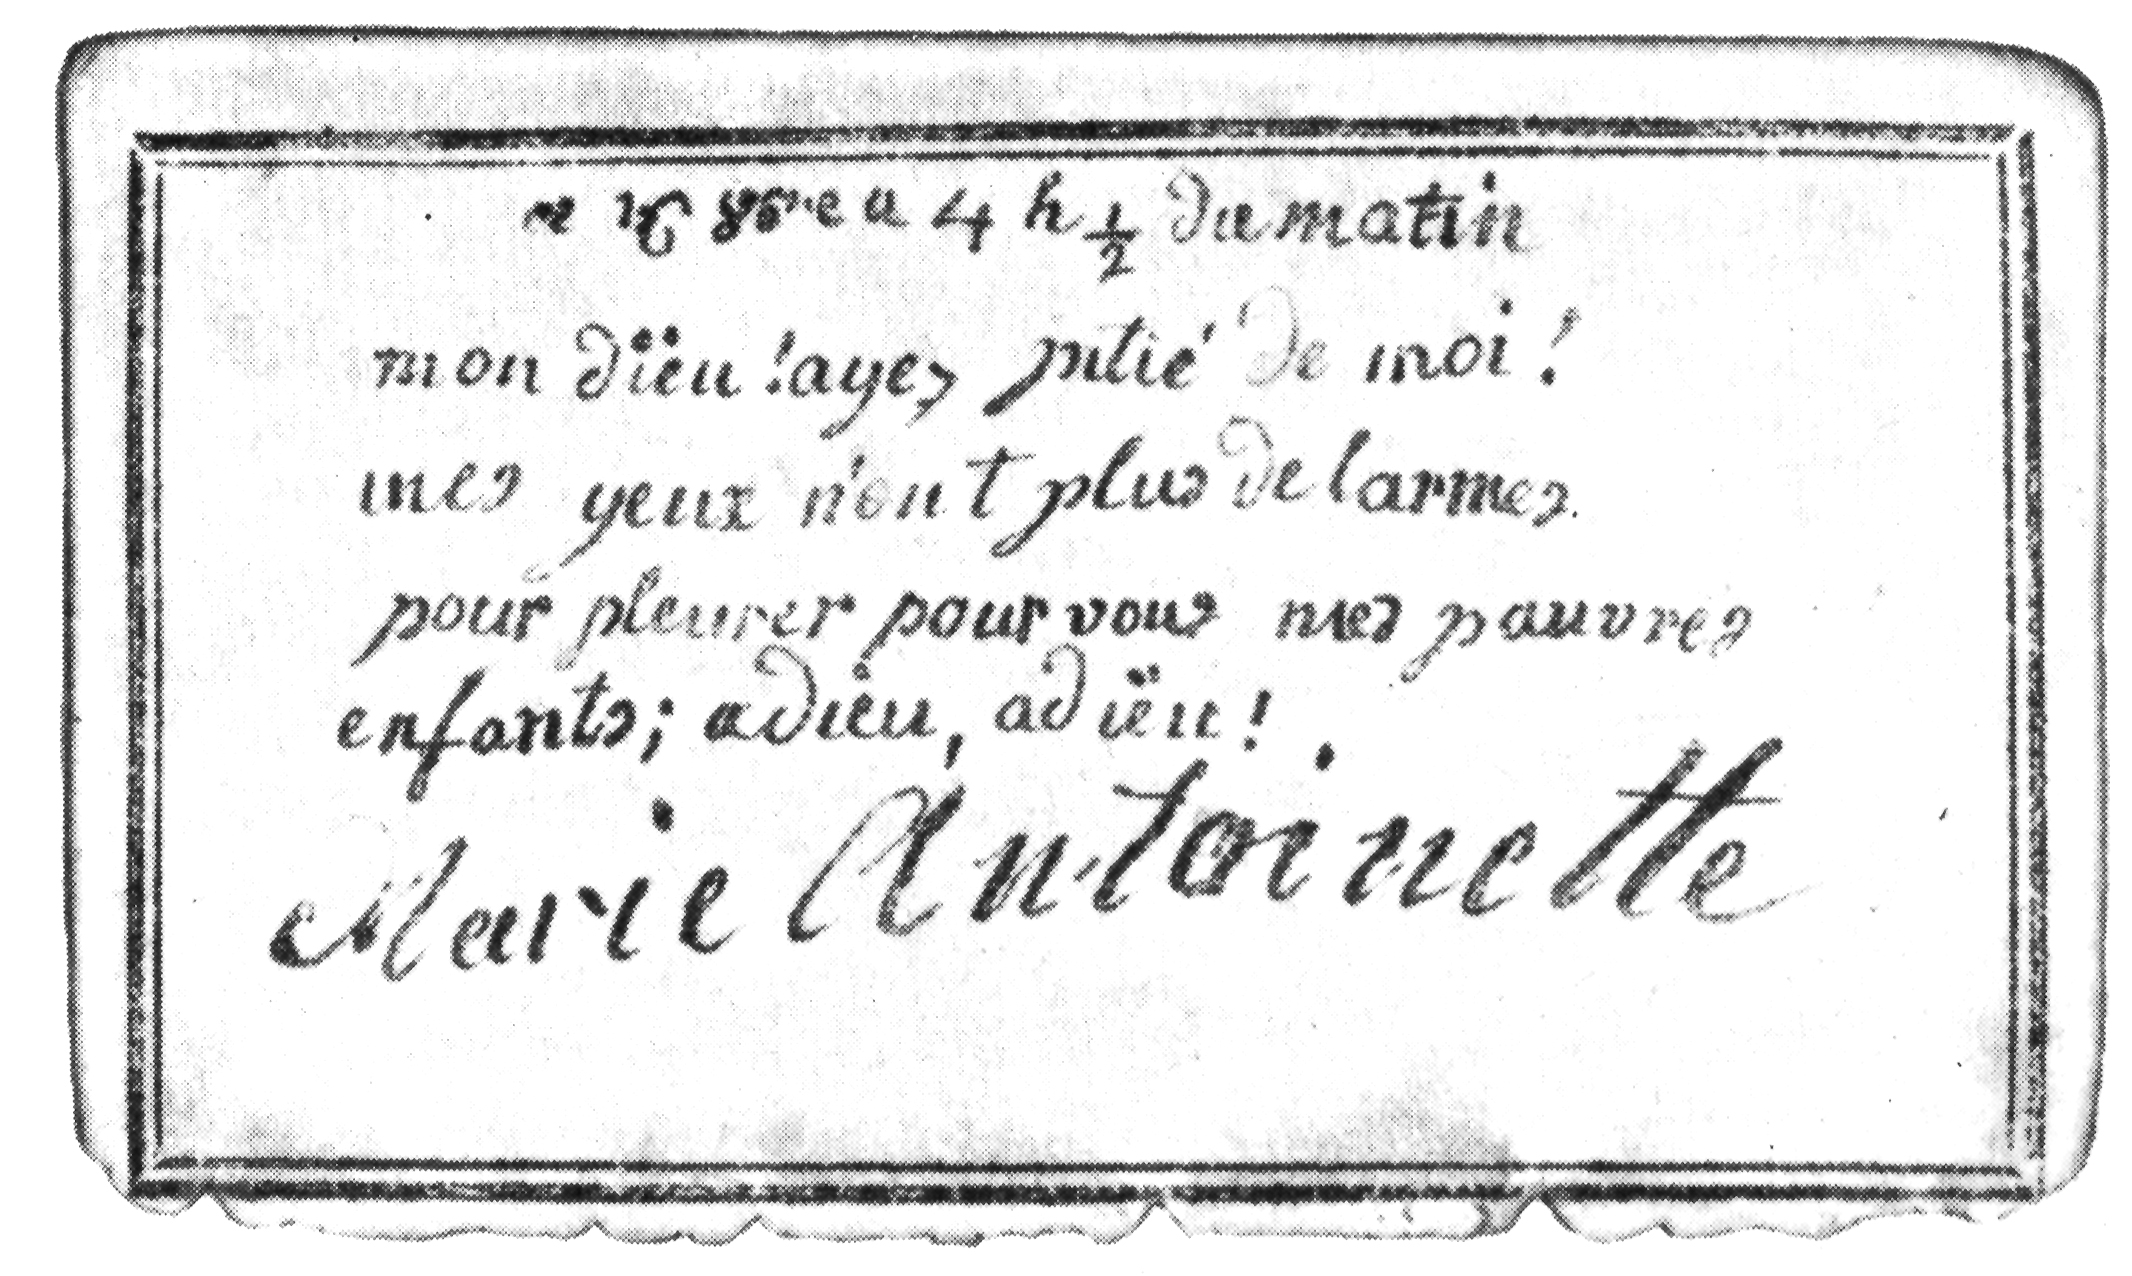 ce 16 8bre a 4 h ½ du matin
mon dïeu ! ayez pitié de moi !
mes yeux n'ont plus de larmes
pour pleurer pour vous mes pauvres
enfants; adieu, adïeu !.
Marie Antoinette